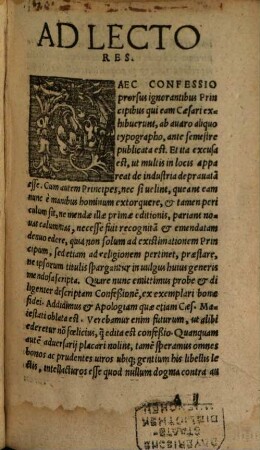 AD LECTO
RES.
HAEC CONFESSIO
prorsus ignorantibus Prin
cipibus qui eam Cæsari ex
hibuerunt, ab auaro aliquo
typographo, ante semestre
publicata est. Et ita excusa
est, ut multis in locis appa
reat de industria deprauatã
esse. Cum autem Principes, nec si uelint, queant eam
nunc è manibus hominum extorquere, & tamen peri
culum sit, ne mendæ illæ primæ editionis, pariant no-
uas calumnias, necesse fuit recognitã & emendatam
denuo edere, quia non solum ad existimationem Prin
cipum, sed etiam ad religionem pertinet, præstare,
ne ipsorum titulis spargantur in uulgus huius generis
mendosa scripta. Quare nunc emittimus probe & di
ligenter descriptam Confeßionẽ, ex exemplari bonæ
fidei. Addidimus & Apologiam quæ etiam Cæs. Ma-
iestati oblata est. Verebamur enim futurum, ut alibi
ederetur nõ fœlicius, q̃ edita est confeßio. Quanquam
autẽ aduersarij placari nolint, tamẽ speramus omnes
bonos ac prudentes uiros ubiq; gentium his libellis le
ctis, intellecturos esse quod nullum dogma contra au
BAYERISCHE
STAATS-
BIBLIOTHEK
MUENCHEN